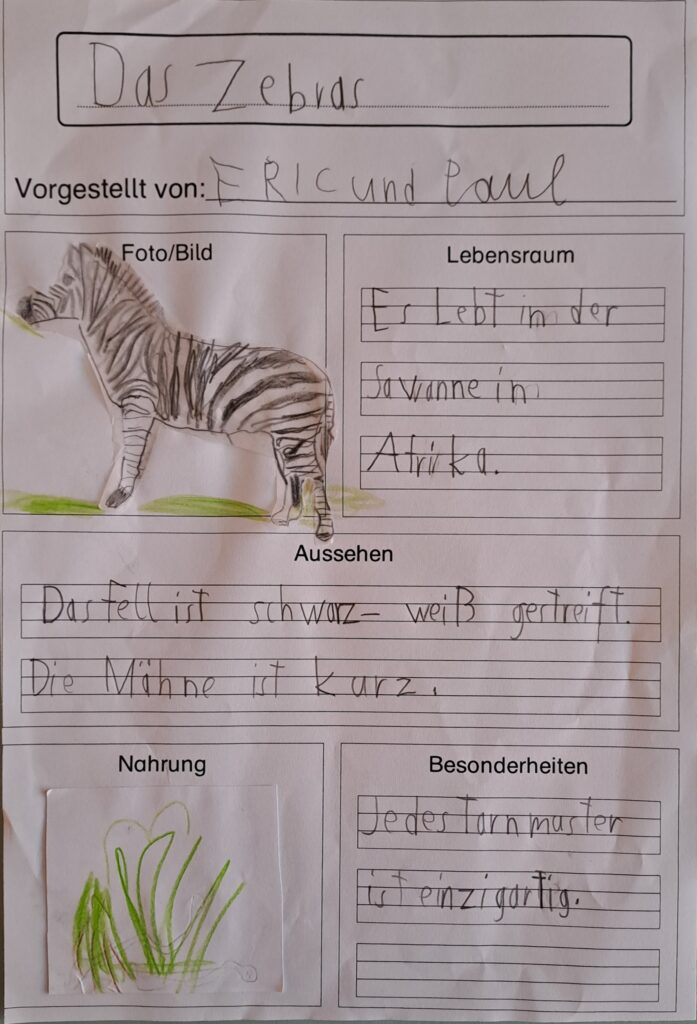 Das Zebras
Vorgestellt von: ERIC und Paul
Foto/Bild
Lebensraum
Es Lebt in der
Savanne in
Afrika.
Aussehen
Das Fell ist schwarz- weiß gestreift.
Die Mähne ist kurz.
Nahrung
Besonderheiten
Jedes Tarnmuster
ist einzigartig.